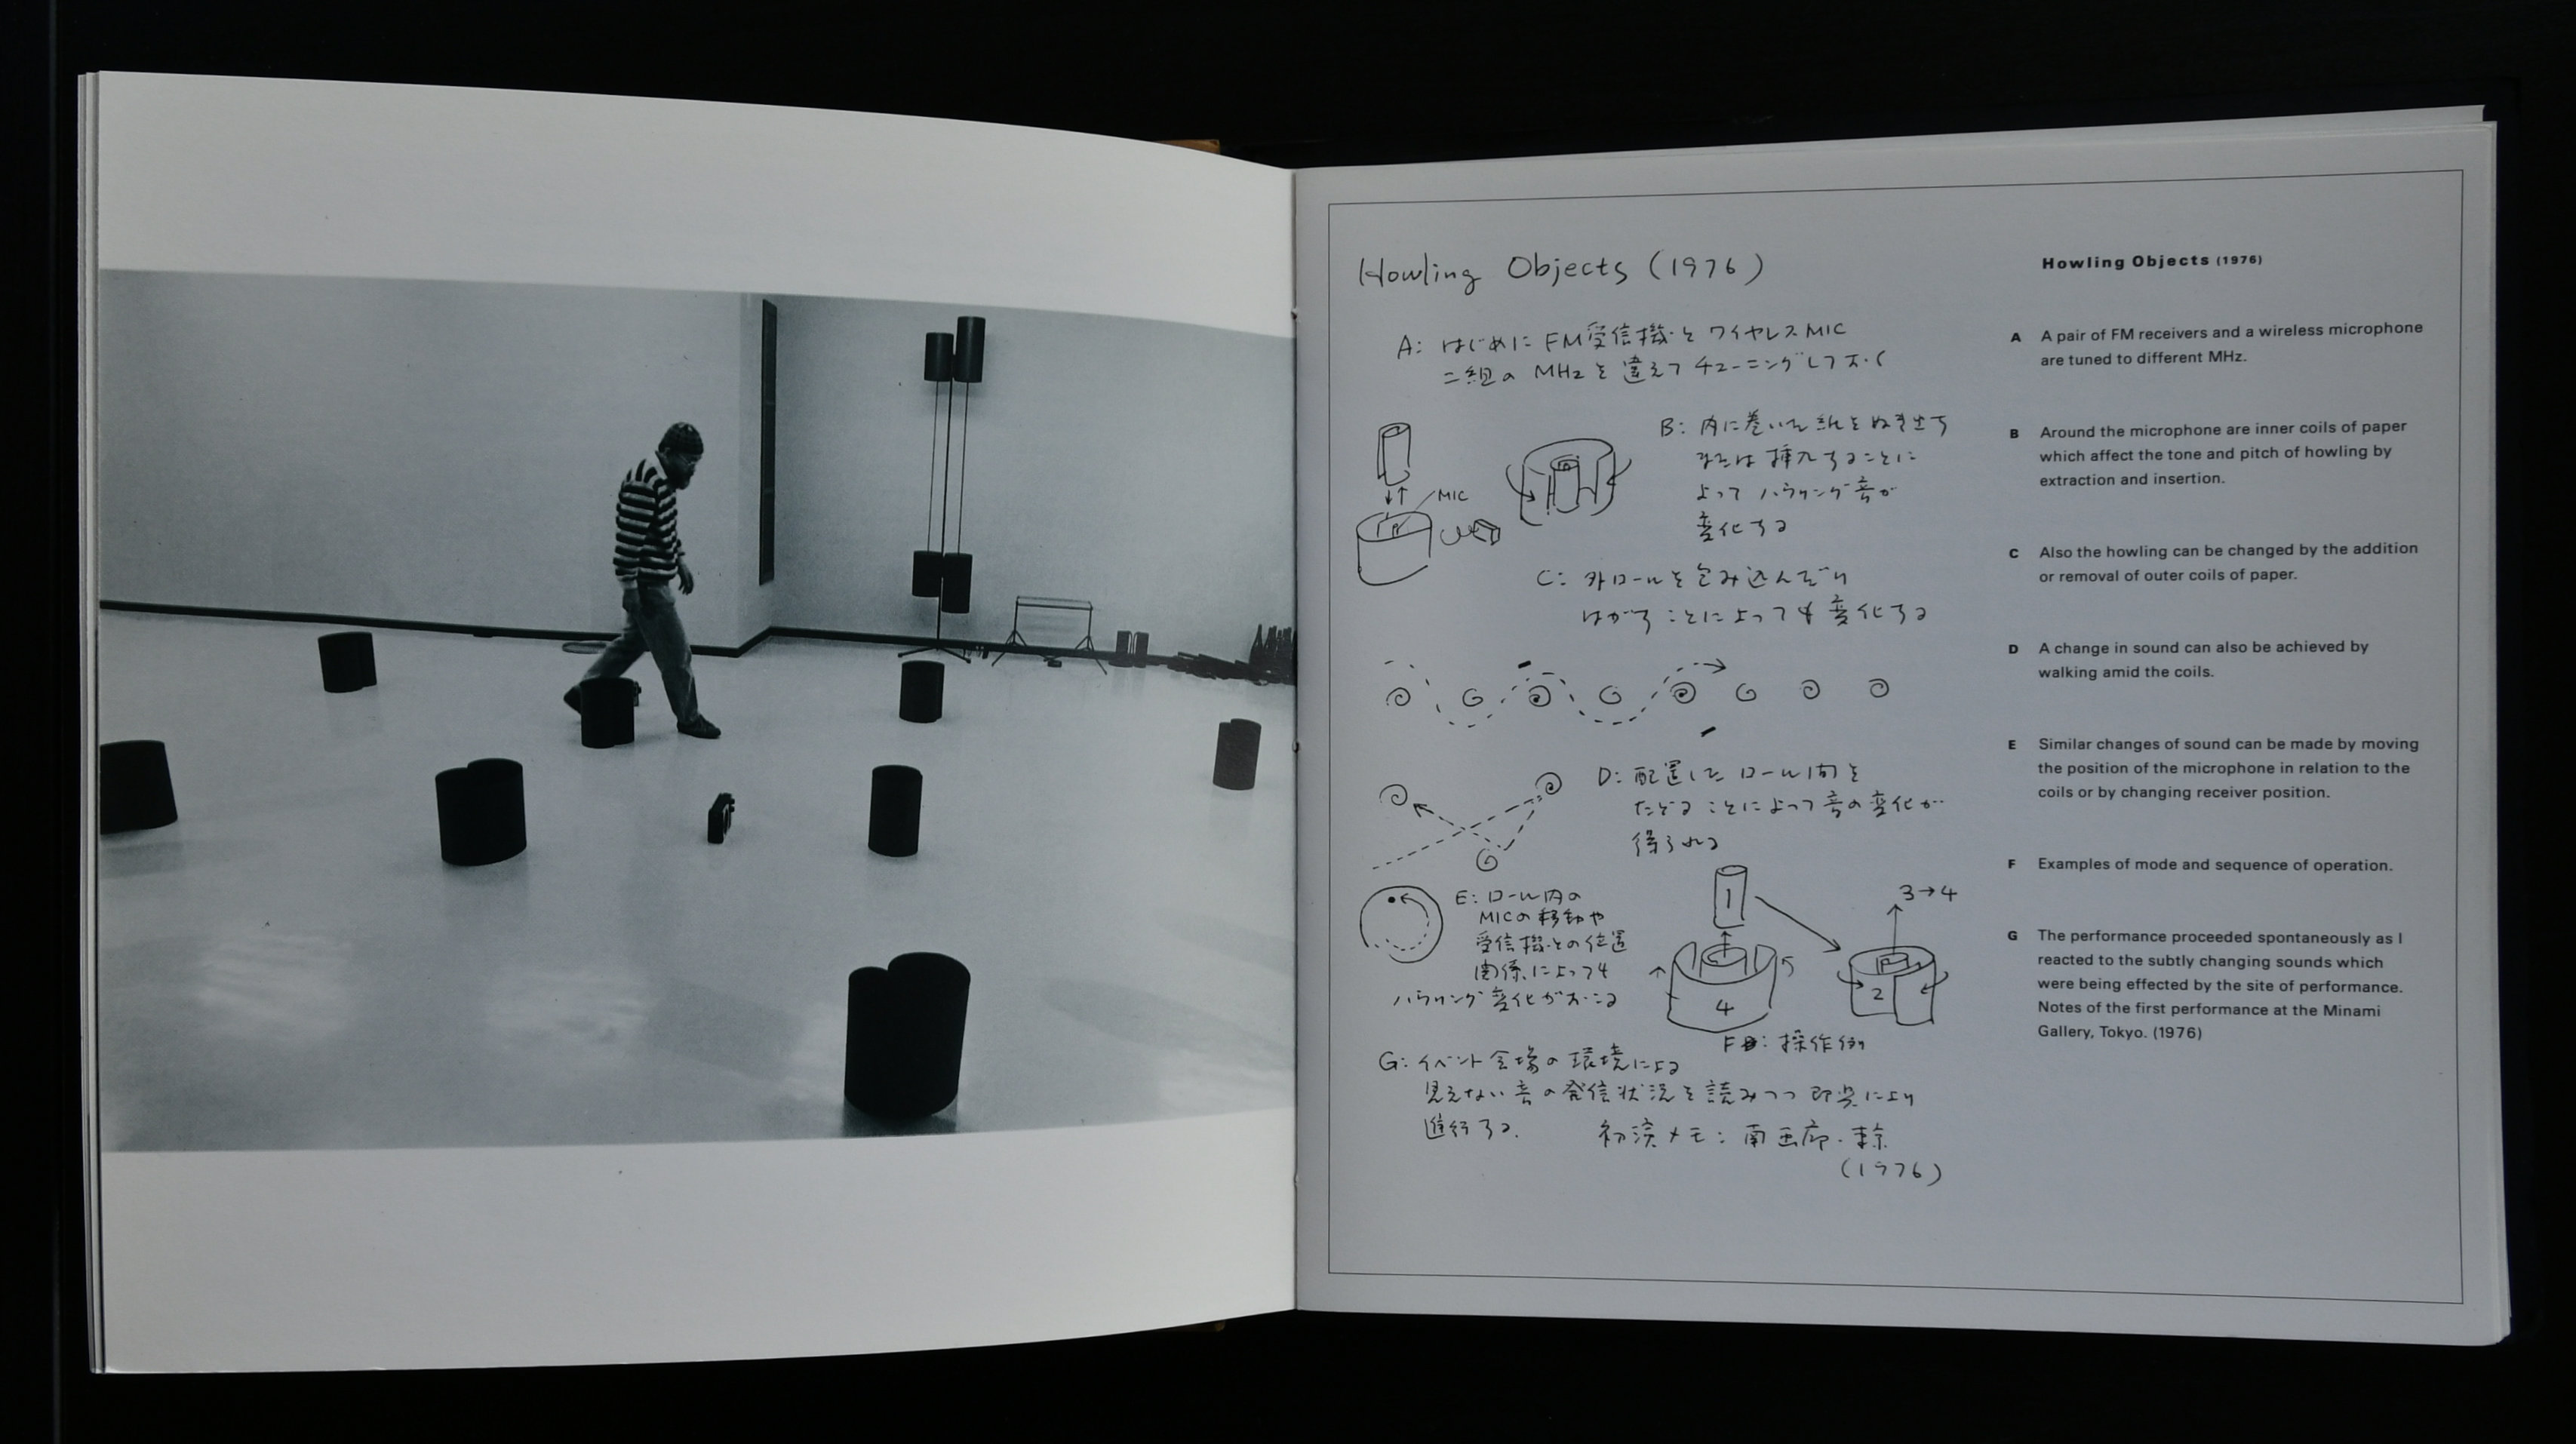 Howling Objects (1976)
A: はじめに FM受信機とワイヤレスMIC
二組の MHzを違えてチューニングしておく
MIC
B: 内に巻いた紙をぬき出す
または挿入することに
よってハウリング音が
変化する
C: 外ロールを包み込んだり
はがすことによっても変化する
D: 配置したロール間を
たどることによって音の変化が
得られる
E: ロール内の
MICの移動や
受信機との位置
関係によっても
ハウリング変化がおこる
1
4
3→4
2
F: 操作例
G: イベント会場の環境による
見えない音の発信状況を読みつつ即興により
進行する.
初演メモ: 南画廊・東京
(1976)
Howling Objects (1976)
A A pair of FM receivers and a wireless microphone
are tuned to different MHz.
B Around the microphone are inner coils of paper
which affect the tone and pitch of howling by
extraction and insertion.
C Also the howling can be changed by the addition
or removal of outer coils of paper.
D A change in sound can also be achieved by
walking amid the coils.
E Similar changes of sound can be made by moving
the position of the microphone in relation to the
coils or by changing receiver position.
F Examples of mode and sequence of operation.
G The performance proceeded spontaneously as I
reacted to the subtly changing sounds which
were being effected by the site of performance.
Notes of the first performance at the Minami
Gallery, Tokyo. (1976)